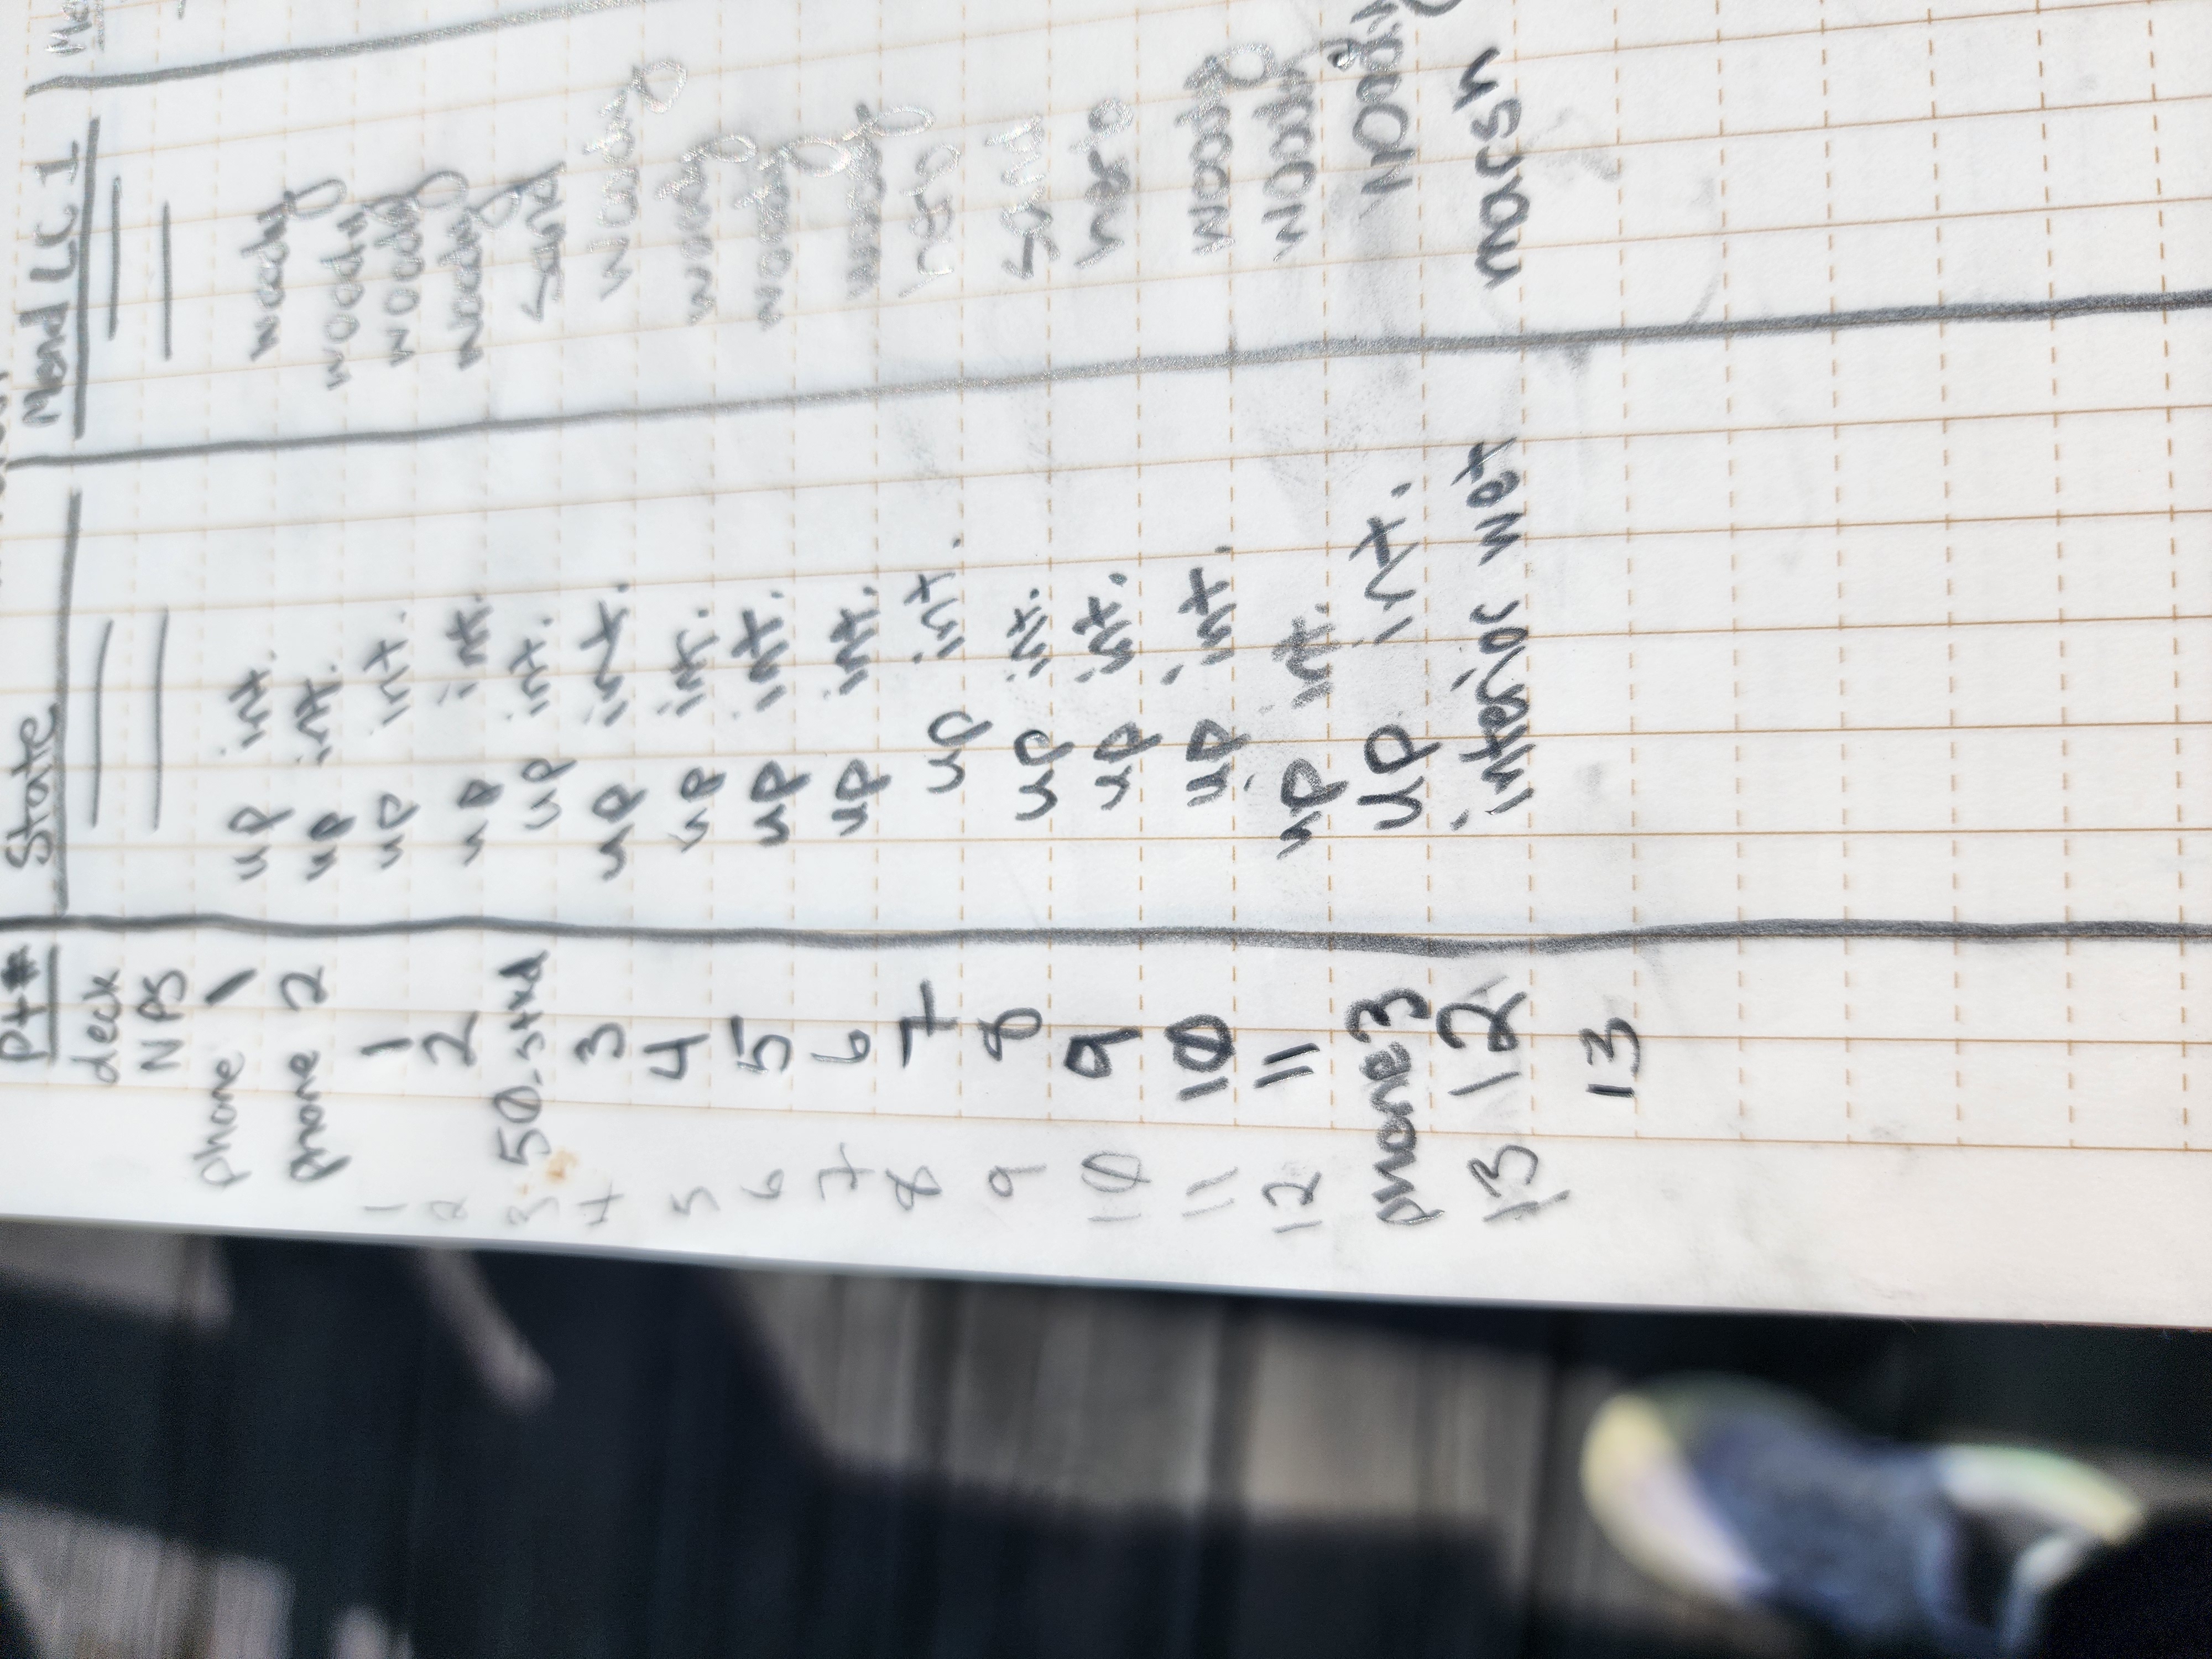 Pt# State LC 1
deck
NPS
phone 1 up int. woody
phone 2 up int. woody
1 1 up int. woody
2 2 up int. woody
3 50 up int. sand
4 3 up int. woody
5 4 up int. woody
6 5 up int. woody
7 6 up int. woody
8 7 up int. herb
9 8 up int. sand
10 9 up int. herb
11 10 up int. woody
12 11 up int. woody
phone3 up int. woody
13 12 interior wet marsh
13